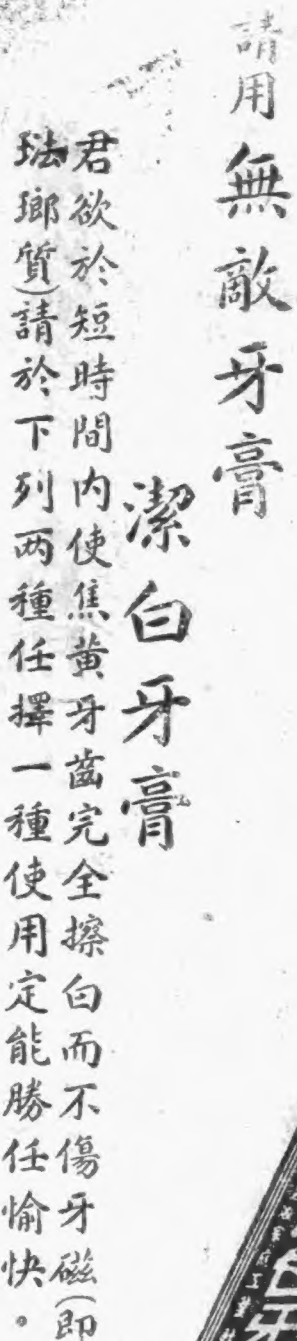 請用無敵牙膏
潔白牙膏
君欲於短時間内使焦黄牙齒完全擦白而不傷牙磁(即
琺瑯質)請於下列两種任擇一種使用定能勝任愉快。